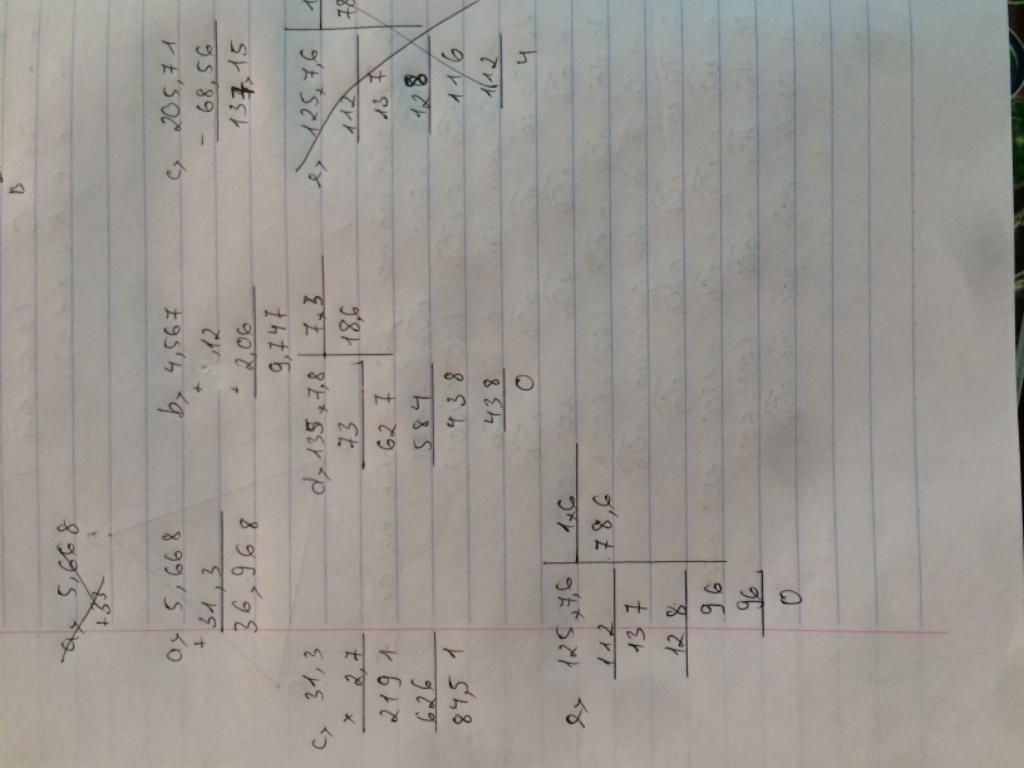 a, 5,668
a, 5,668
+ 31,3
36,968
b, 4,567
+ ,12
+ 2,06
9,747
c, 205,71
- 68,56
137,15
c, 31,3
× 2,7
219 1
626
84,5 1
d, 135,7,8 7,3
73 18,6
62 7
58 4
4 3 8
4 3 8
0
e, 125,7,6 1
112 78
13 7
12 8
1 1 6
1 1 2
4
e, 125,7,6 1,6
112 78,6
13 7
12 8
9 6
96
0